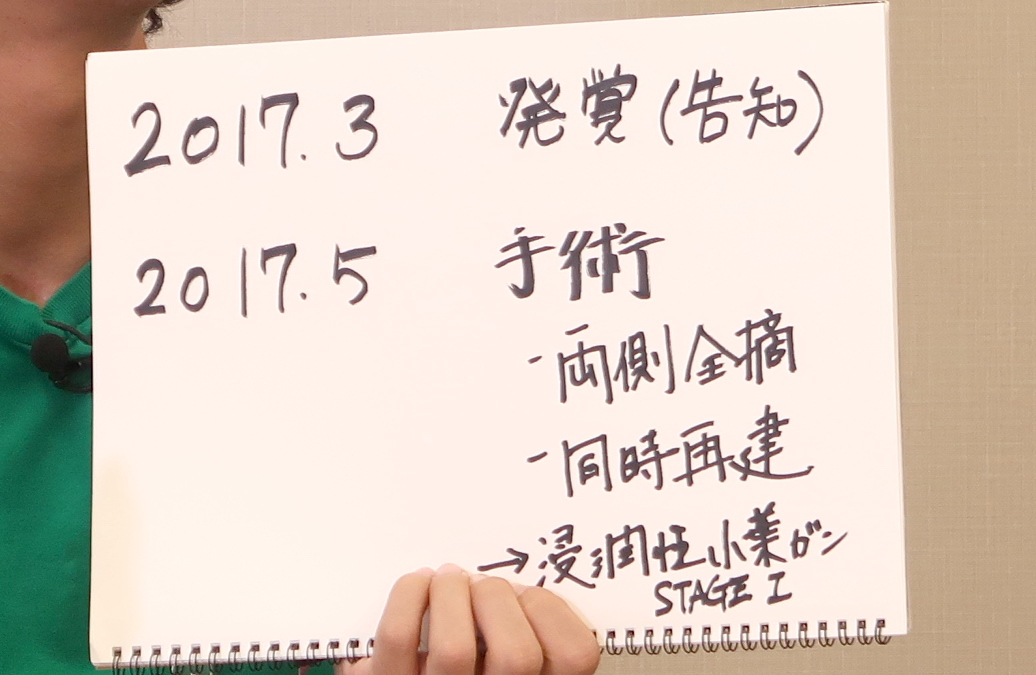 2017.3 発覚(告知)
2017.5 手術
- 両側全摘
- 同時再建
→浸潤性小葉ガン
STAGE I